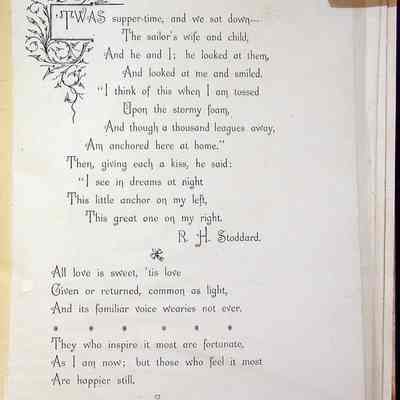 'TWAS supper-time, and we sat down—
The sailor's wife and child,
And he and I; he looked at them,
And looked at me and smiled.
"I think of this when I am tossed
Upon the stormy foam,
And though a thousand leagues away,
Am anchored here at home."
Then, giving each a kiss, he said:
"I see in dreams at night
This little anchor on my left,
This great one on my right.
R. H. Stoddard.
All love is sweet, 'tis love
Given or returned, common as light,
And its familiar voice wearies not ever.
* * * * * *
They who inspire it most are fortunate,
As I am now; but those who feel it most
Are happier still.